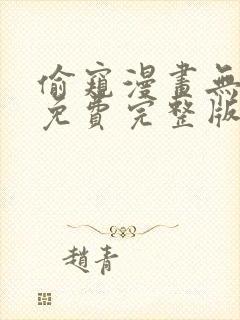 偷窺漫畫無
免費完整版
趙青